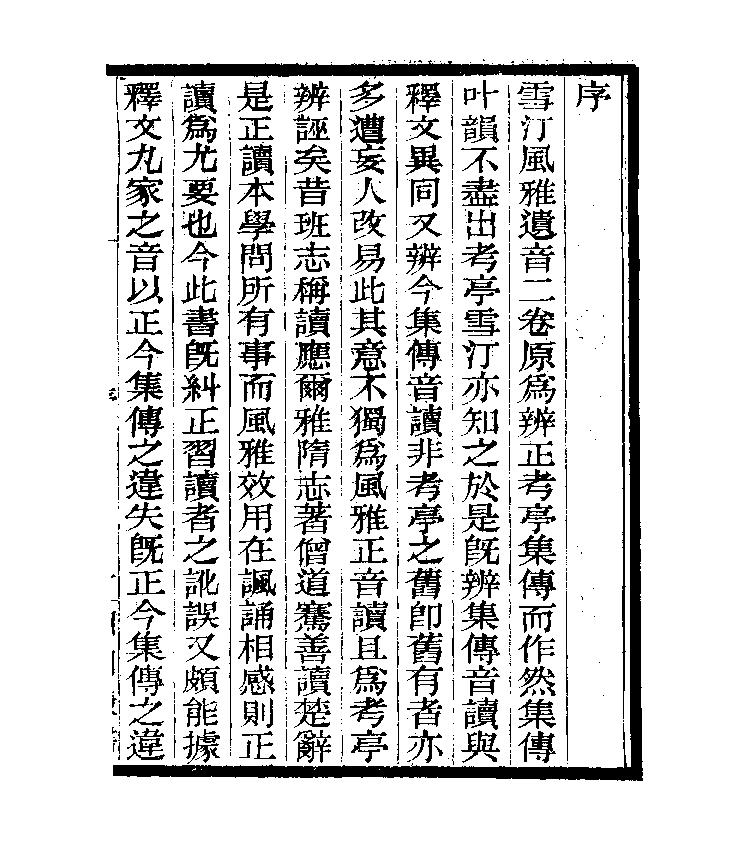 序
雪汀風雅遺音二卷原爲辨正考亭集傳而作然集傳
叶韻不盡出考亭雪汀亦知之於是旣辨集傳音讀與
釋文異同又辨今集傳音讀非考亭之舊卽舊有者亦
多遭妄人改易此其意不獨爲風雅正音讀且爲考亭
辨誣矣昔班志稱讀應爾雅隋志著僧道騫善讀楚辭
是正讀本學問所有事而風雅效用在諷誦相感則正
讀爲尤要也今此書旣糾正習讀者之訛誤又頗能據
釋文九家之音以正今集傳之違失旣正今集傳之違